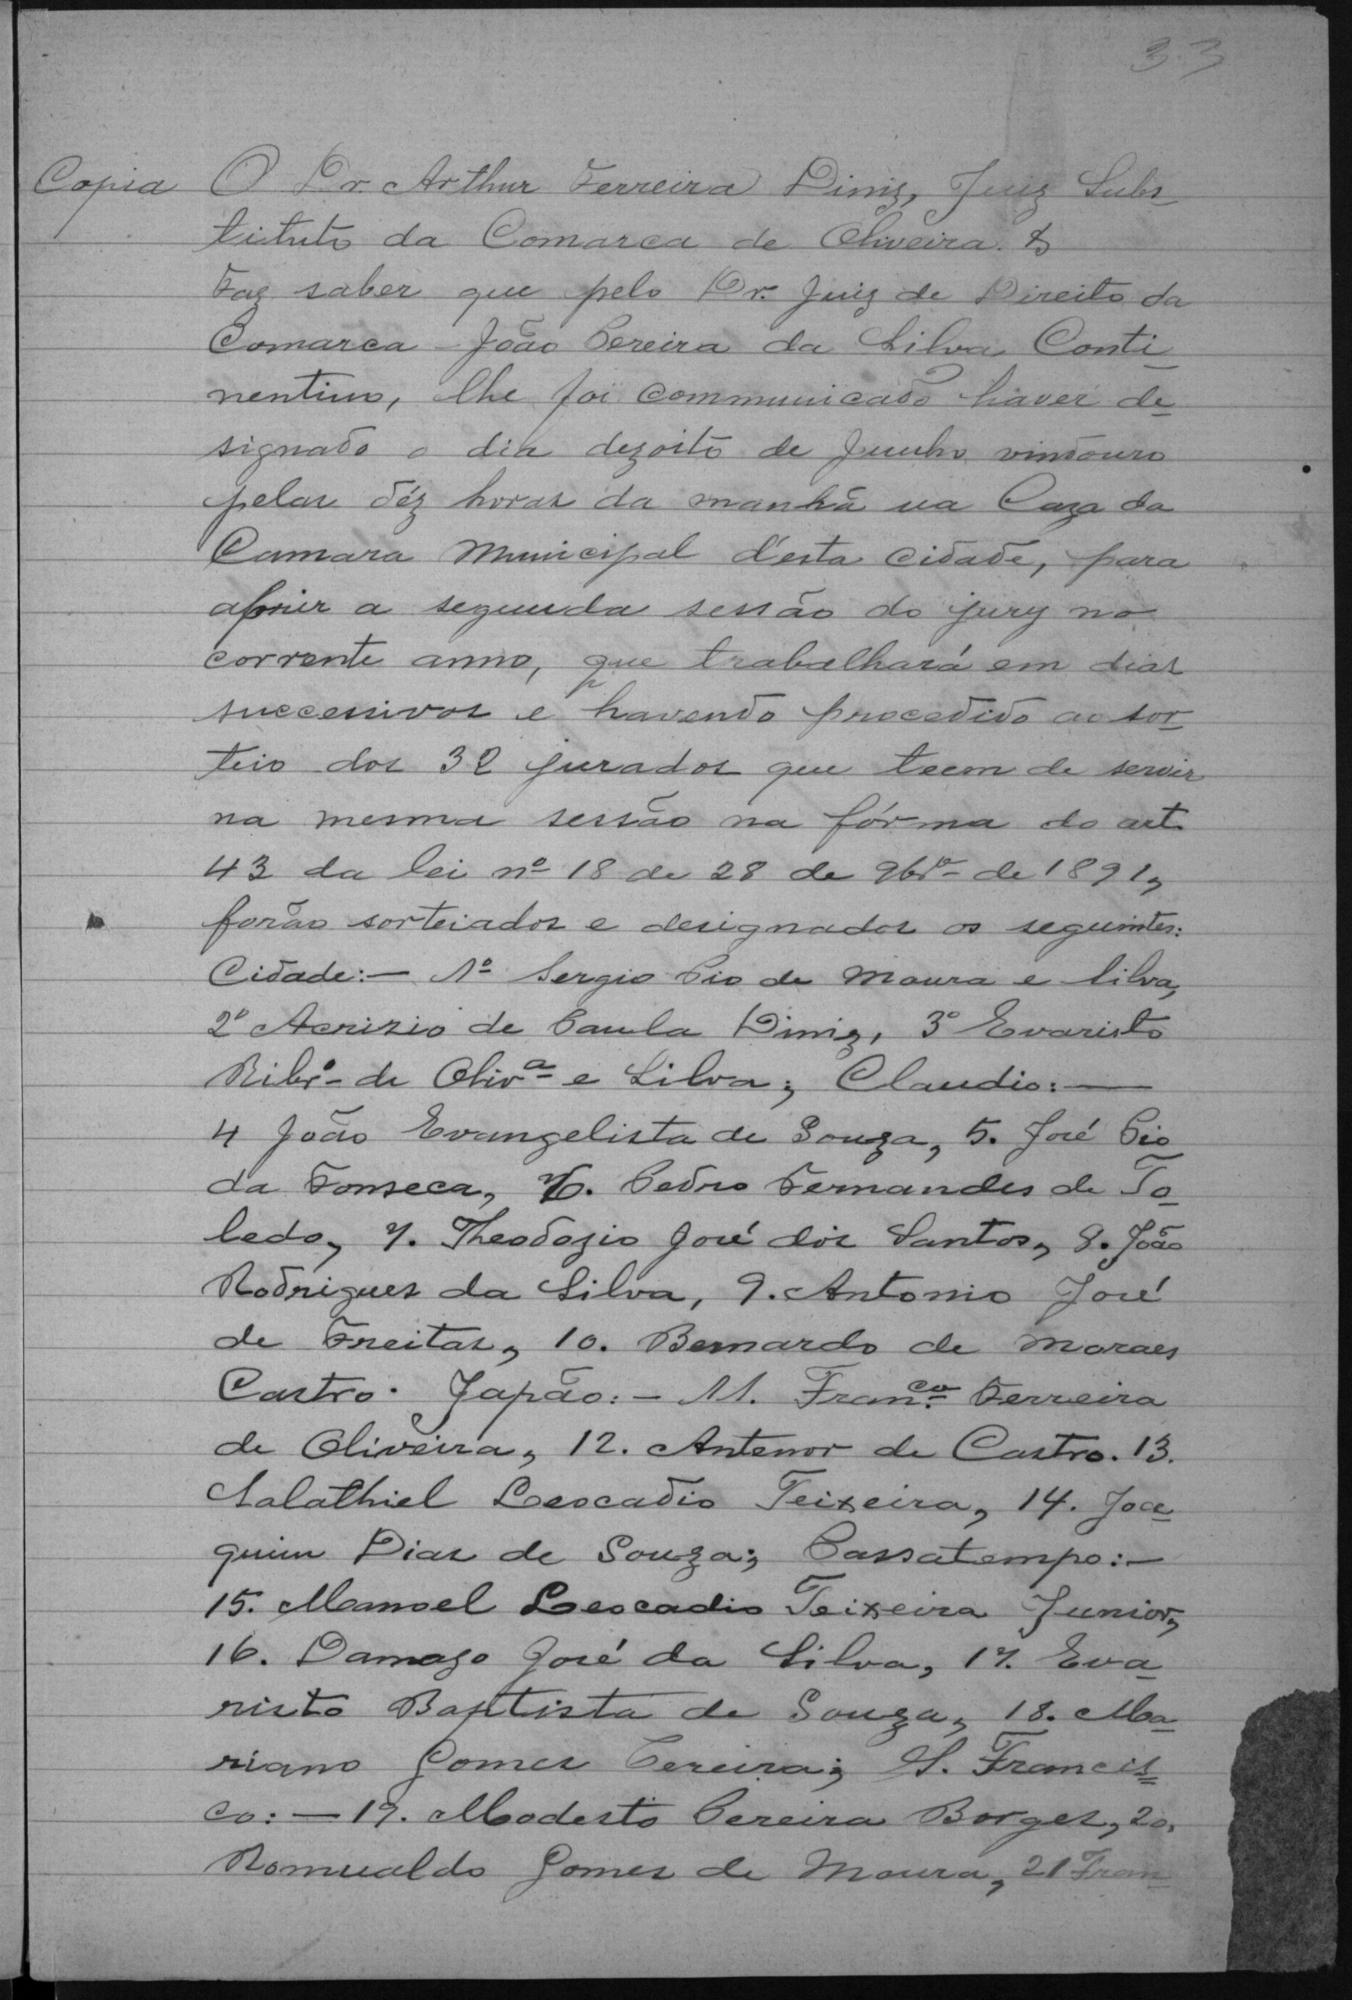 33
Copia O Dr. Arthur Ferreira Diniz, Juiz Subs
tituto da Comarca de Oliveira. &
Faz saber que pelo Dr. Juiz de Direito da
Comarca - João Pereira da Silva Conti
nentino, lhe foi communicado haver de-
signado o dia dezoito de Junho vindouro
pelas déz horas da manhã na Caza da
Camara Municipal d'esta cidade, para
abrir a segunda sessão do jury no
corrente anno, que trabalhará em dias
successivos e havendo procedido ao sor-
teio dos 32 jurados que teem de servir
na mesma sessão na fórma do art.
43 da lei nº 18 de 28 de 9brº de 1891,
forão sorteiados e designados os seguintes:
Cidade:- 1º Sergio Pio de Moura e Silva,
2º Acrizio de Paula Diniz, 3º Evaristo
Ribrº de Olivª e Silva; Claudio:-
4 João Evangelista de Souza, 5. José Pio
da Fonseca, 6. Pedro Fernandes de To-
ledo, 7. Theodozio José dos Santos, 8. João
Rodrigues da Silva, 9. Antonio José
de Freitas, 10. Bernardo de Moraes
Castro. Japão:- 11. Franco. Ferreira
de Oliveira, 12. Antenor de Castro. 13.
Salathiel Leocadio Teixeira, 14. Joa-
quim Dias de Souza; Passatempo:-
15. Manoel Leocadio Teixeira Junior,
16. Damazo José da Silva, 17. Eva-
risto Baptista de Souza, 18. Ma-
riano Gomes Pereira; S. Francis-
co:- 19. Modesto Pereira Borges, 20.
Romualdo Gomes de Moura, 21 Fran-